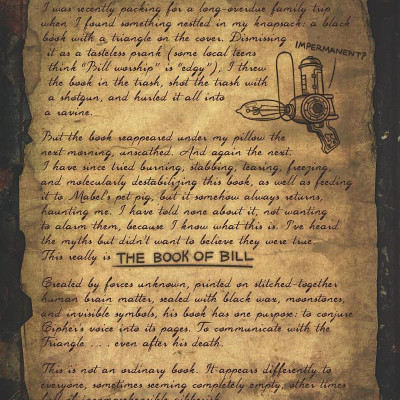 I was recently packing for a long-overdue family trip
when I found something nestled in my knapsack: a black
book with a triangle on the cover. Dismissing
it as a tasteless prank (some local teens
think "Bill worship" is "edgy"), I threw
the book in the trash, shot the trash with
a shotgun, and hurled it all into
a ravine.
IMPERMANENT?
But the book reappeared under my pillow the
next morning, unscathed. And again the next.
I have since tried burning, stabbing, tearing, freezing,
and molecularly destabilizing this book, as well as feeding
it to Mabel's pet pig, but it somehow always returns,
haunting me. I have told none about it, not wanting
to alarm them, because I know what this is. I've heard
the myths but didn't want to believe they were true.
This really is THE BOOK OF BILL
Created by forces unknown, printed on stitched-together
human brain matter, sealed with black wax, moonstones,
and invisible symbols, his book has one purpose: to conjure
Cipher's voice into its pages. To communicate with the
Triangle . . . even after his death.
This is not an ordinary book. It appears differently to
everyone, sometimes seeming completely empty, other times
full of incomprehensible gibberish